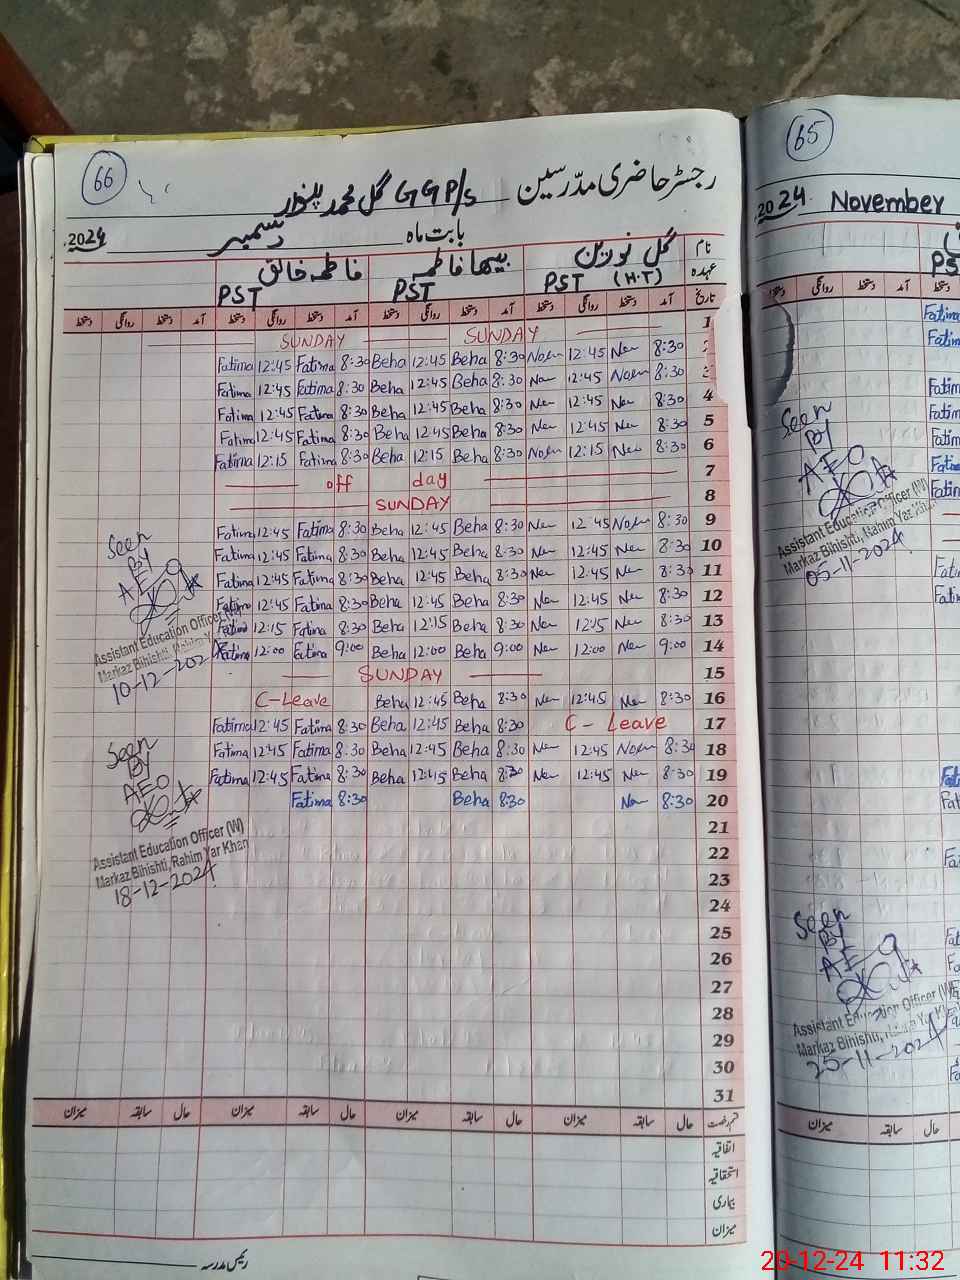 66
رجسٹر حاضری مدرسین GGP/S گل محمد
2024 بابت ماہ دسمبر
نام گل نورین بیہا فاطمہ فاطمہ خالق
عہدہ PST (H.T) PST PST
تاریخ آمد دستخط روانگی دستخط آمد دستخط روانگی دستخط آمد دستخط روانگی دستخط آمد دستخط روانگی دستخط
SUNDAY SUNDAY 1
Fatima 12:45 Fatima 8:30 Beha 12:45 Beha 8:30 Noren 12:45 8:30
Fatima 12:45 Fatima 8:30 Beha 12:45 Beha 8:30 12:45 Noren 8:30
Fatima 12:45 Fatima 8:30 Beha 12:45 Beha 8:30 12:45 8:30 4
Fatima 12:45 Fatima 8:30 Beha 12:45 Beha 8:30 12:45 8:30 5
Fatima 12:15 Fatima 8:30 Beha 12:15 Beha 8:30 Noren 12:15 8:30 6
off day 7
SUNDAY 8
Fatima 12:45 Fatima 8:30 Beha 12:45 Beha 8:30 12:45 Noren 8:30 9
Fatima 12:45 Fatima 8:30 Beha 12:45 Beha 8:30 12:45 8:30 10
Fatima 12:45 Fatima 8:30 Beha 12:45 Beha 8:30 12:45 8:30 11
Fatima 12:45 Fatima 8:30 Beha 12:45 Beha 8:30 12:45 8:30 12
Fatima 12:15 Fatima 8:30 Beha 12:15 Beha 8:30 12:15 8:30 13
Fatima 12:00 Fatima 9:00 Beha 12:00 Beha 9:00 12:00 9:00 14
SUNDAY 15
C-Leave Beha 12:45 Beha 8:30 12:45 8:30 16
Fatima 12:45 Fatima 8:30 Beha 12:45 Beha 8:30 C- Leave 17
Fatima 12:45 Fatima 8:30 Beha 12:45 Beha 8:30 12:45 Noren 8:30 18
Fatima 12:45 Fatima 8:30 Beha 12:45 Beha 8:30 12:45 8:30 19
Fatima 8:30 Beha 8:30 8:30 20
21
22
23
24
25
26
27
28
29
30
31
Seen
By
AEO
Assistant Education Officer (W)
Markaz Bihishti, Rahim Yar Khan
10-12-2024
Seen
By
AEO
Assistant Education Officer (W)
Markaz Bihishti, Rahim Yar Khan
18-12-2024
قسم رخصت حال سابقہ میزان حال سابقہ میزان حال سابقہ میزان حال سابقہ میزان
اتفاقیہ
استحقاقیہ
بیماری
میزان
رئیس مدرسہ
65
2024 November
PS
دستخط روانگی دستخط آمد
Fatima
Fatim
Fatim
Fatim
Fatim
Fatim
Fatim
Seen
By
AEO
Assistant Education Officer (W)
Markaz Bihishti, Rahim Yar Khan
05-11-2024
Seen
By
AEO
Assistant Education Officer (W)
Markaz Bihishti, Rahim Yar Kh
25-11-2024
میزان سابقہ حال
20-12-24 11:32